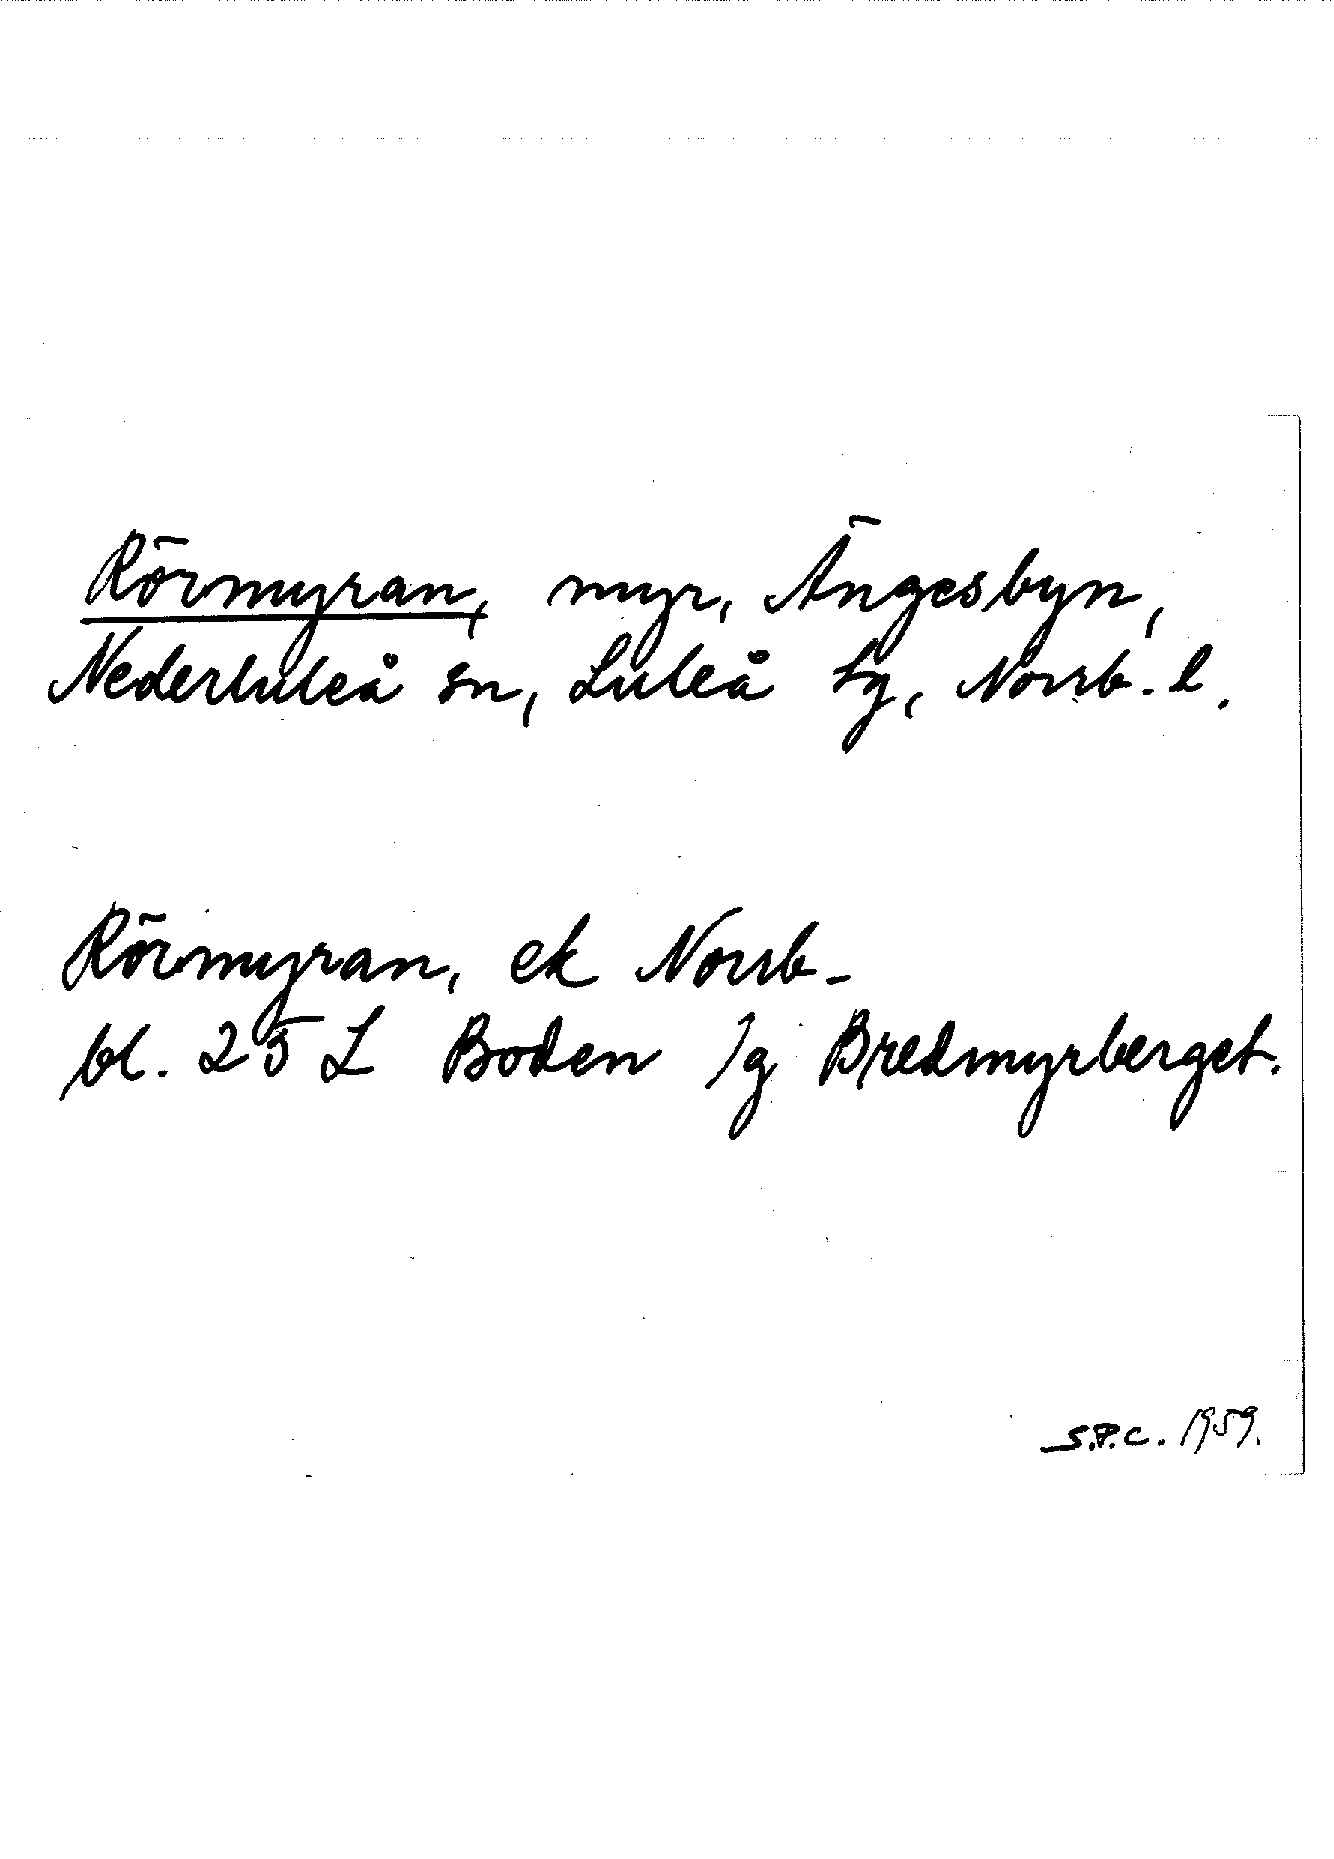 Rörmyran, myr, Ängesbyn,
Nederluleå sn, Luleå tg, Norrb. l.
Rörmyran, ek Norrb-
bl. 25 L Boden 1g Bredmyrberget.
S.P.C. 1959.